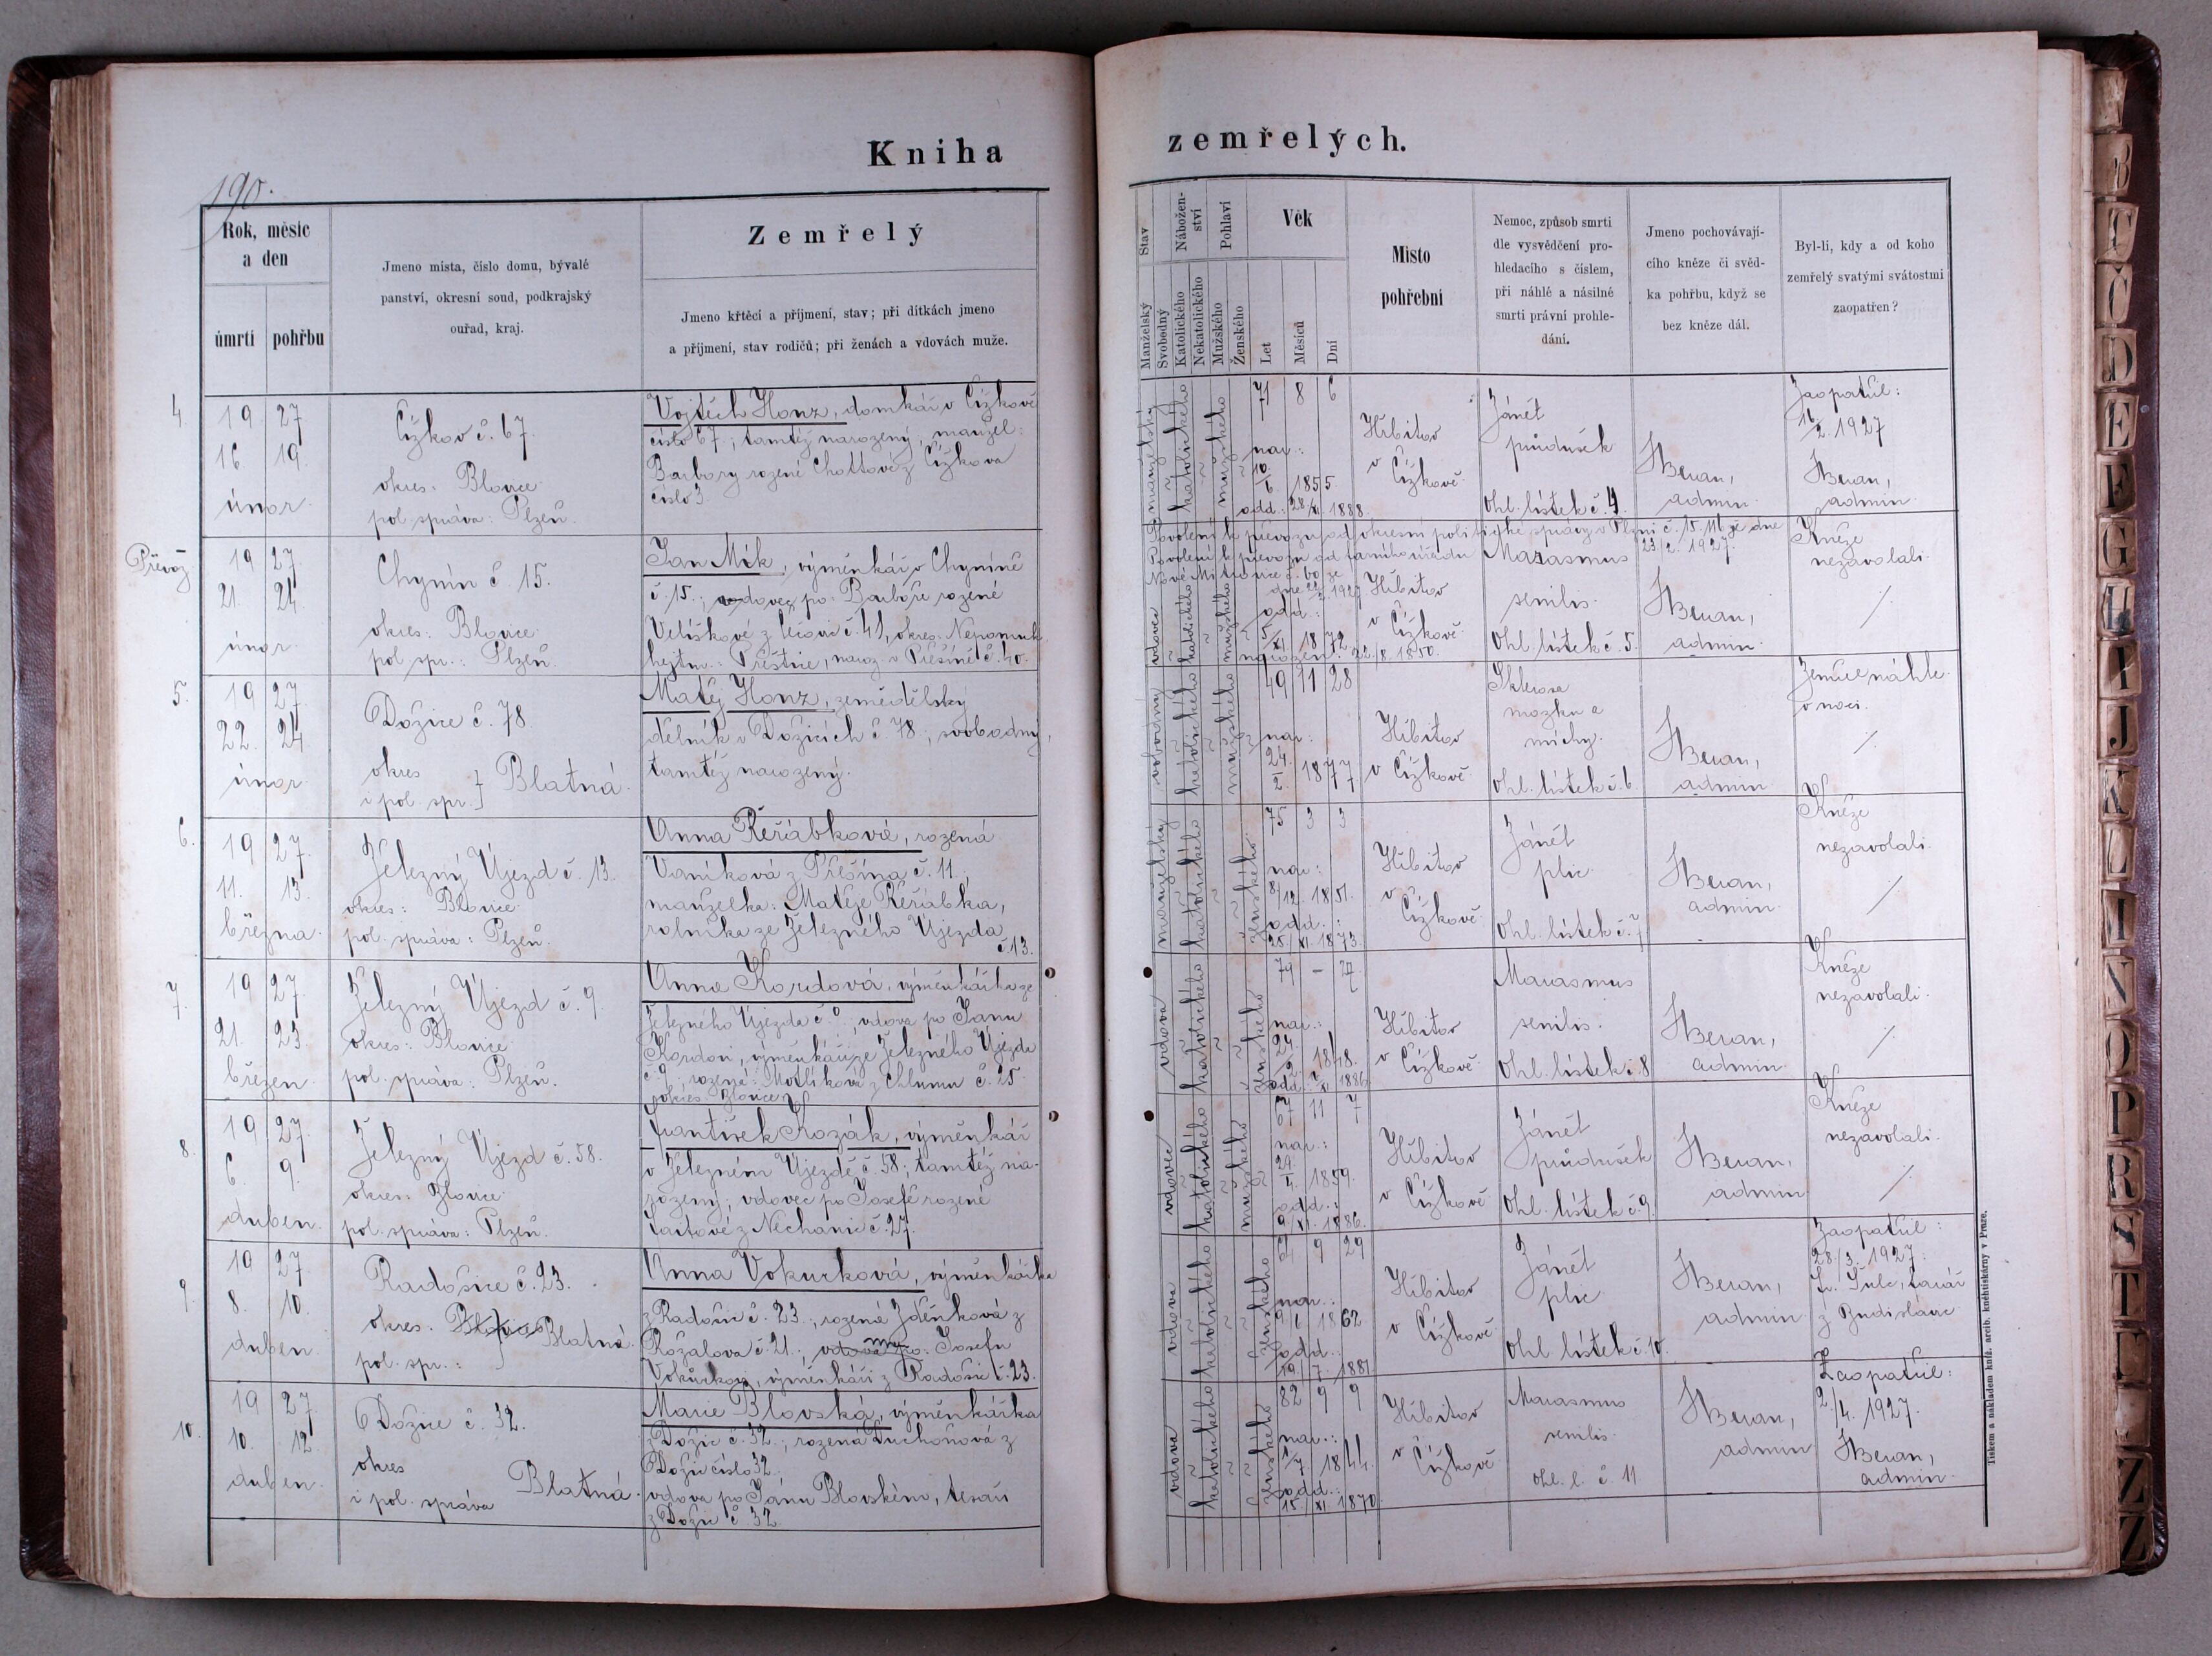 Kniha zemřelých.
190.
Rok, měsíc
a den
úmrtí
pohřbu
Jmeno místa, číslo domu, bývalé
panství, okresní soud, podkrajský
ouřad, kraj.
Zemřelý
Jmeno křtěcí a příjmení, stav; při dítkách jmeno
a příjmení, stav rodičů; při ženách a vdovách muže.
Stav
Manželský
Svobodný
Nábožen-
ství
Katolického
Nekatolického
Pohlaví
Mužského
Ženského
Věk
Let
Měsíců
Dní
Místo
pohřební
Nemoc, způsob smrti
dle vysvědčení pro-
hledacího s číslem,
při náhlé a násilné
smrti právní prohle-
dání.
Jmeno pochovávají-
cího kněze či svěd-
ka pohřbu, když se
bez kněze dál.
Byl-li, kdy a od koho
zemřelý svatými svátostmi
zaopatřen?
4
19 27
16 19.
únor.
Čížkov č. 67.
okres. Blovice
pol. správa: Plzeň.
Vojtěch Honz, domkář v Čížkově
číslo 67.; tamtéž narozený, manžel:
Barbory rozené Chottové z Čížkova
číslo 3.
manželský
katolického
mužského
71 8 6
nar.:
10/6. 1855.
odd.: 28/XI. 1888.
Hřbitov
v Čížkově
Zánět
průdušek
Ohl. lístek č. 4.
Beran,
admin.
Zaopatřil:
16/2. 1927
Beran,
admin.
Převoz
19 27.
21. 24.
únor.
Chynín č 15.
okres: Blovice
pol. spr.: Plzeň.
Jan Mík, výměnkář v Chyníně
č. 15.; vdovec po Barboře rozené
Velíškové z č. 41, okres. Nepomuk
hejtm: Přeštice, naroz. v Přešíně č. 40.
Povolení k převozu od okresní politické správy v Plzni č. 15.116 ze dne
23/2. 1927.
Povolení k převozu od úřadu
Nové Mitrovice č. 60 ze
dne 22/2 1927
vdovec
katolického
mužského
odd.:
5/XI. 1872
narozen: 22./8. 1850.
Hřbitov
v Čížkově
Marasmus
senilis.
Ohl. lístek č. 5.
Beran,
admin.
Kněze
nezavolali.
5.
19 27.
22. 24
únor
Dožice č. 78.
okres
i pol. spr. } Blatná.
Matěj Honz, zemědělský
dělník v Dožicích č 78; svobodný,
tamtéž narozený.
svobodný
katolického
mužského
49 11 28
nar:
24/2. 1877
Hřbitov
v Čížkově
Sklerosa
mozku a
míchy.
Ohl. lístek č. 6.
Beran,
admin.
Zemřel náhle
v noci.
6.
19 27.
11. 13.
března.
Železný Újezd č. 13.
okres: Blovice
pol. správa: Plzeň.
Anna Řeřábková, rozená
Vaníková z Přešína č. 11.,
manželka: Matěje Řeřábka,
rolníka ze Železného Újezda
č. 13.
manželský
katolického
ženského
75 3 3
nar:
8/12. 1851.
odd.:
25/XI. 1873.
Hřbitov
v
Čížkově
Zánět
plic.
Ohl. lístek č. 7
Beran,
admin.
Kněze
nezavolali.
7.
19 27.
21. 23.
březen.
Železný Újezd č. 9.
okres: Blovice
pol. správa: Plzeň.
Anna Kordová, výměnkářka ze
Železného Újezda č. 9, vdova po Janu
Kordovi, výměnkáři ze Železného Újezda
č. 9., rozené: Motlíková z Chlumu č. 25.
okres Blovice
vdova
katolického
ženského
79 – 27.
nar.:
24/2. 1848.
odd. XI 1886.
Hřbitov
v Čížkově
Marasmus
senilis.
Ohl. lístek č. 8
Beran,
admin.
Kněze
nezavolali.
8.
19 27.
6. 9.
duben.
Železný Újezd č. 58.
okres: Blovice
pol. správa: Plzeň.
František Kozák, výměnkář
v Železném Újezdě č. 58; tamtéž na-
rozený; vdovec po Josefě rozené
Tartové z Nechanic č. 27.
vdovec
katolického
mužského
67 11 7
nar.:
29./4. 1859.
odd.:
9/XI. 1886.
Hřbitov
v Čížkově
Zánět
průdušek
Ohl. lístek č 9.
Beran,
admin
Kněze
nezavolali.
9.
19 27.
8. 10.
duben.
Radošice č. 23.
okres. Blovice Blatná.
pol. spr.:
Anna Vokurková, výměnkářka
z Radošic č. 23., rozená Zdeňková z
Rožalova č. 21.; vdova po: Josefu
Vokurkovi, výměnkáři z Radošic č. 23.
vdova
katolického
ženského
64 9 29
nar.:
9/6 1862
odd.:
19./7. 1881.
Hřbitov
v Čížkově
Zánět
plic
Ohl. lístek č. 10.
Beran,
admin.
Zaopatřil:
28./3. 1927.
Fr. Šulc, farář
z Budislavic
10.
19 27
10. 12.
duben.
Dožice č. 32.
okres
i pol. správa Blatná.
Marie Blovská, výměnkářka
z Dožic č. 32.; rozená Duchoňová z
Dožic číslo 32.
vdova po Janu Blovském, tesaři
z Dožic č 32.
vdova
katolického
ženského
82 9 9
nar.:
1/7 1844.
odd.:
15./XI. 1870.
Hřbitov
v Čížkově
Marasmus
senilis.
ohl. l. č. 11
Beran,
admin
Zaopatřil:
2./4. 1927.
Beran,
admin.
Tiskem a nákladem kníž. arcib. knihtiskárny v Praze.
B
C
Č
D
E
F
G
H
I
J
K
L
M
N
O
P
R
S
T
Z
Z